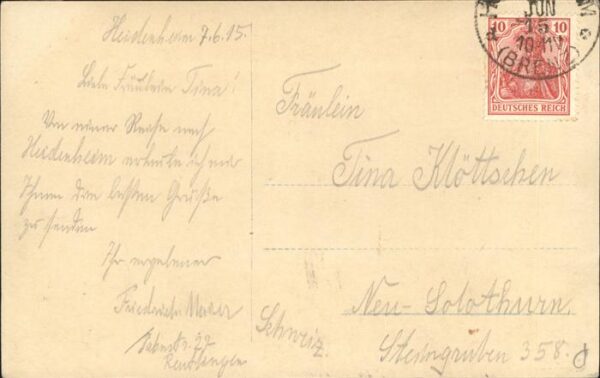 Heidenheim 7.6.15.
Liebe Fräulein Tina!
Von einer Reise nach
Heidenheim erlaube ich mir
Ihnen die besten Grüße
zu senden
Ihr ergebener
Friedrich
Reutlingen
JUN
15
10-11V
(BRENZ)
10 10
DEUTSCHES REICH
Fräulein
Tina Klöttschen
Neu-Solothurn.
Schweiz.
Steingruben 358.